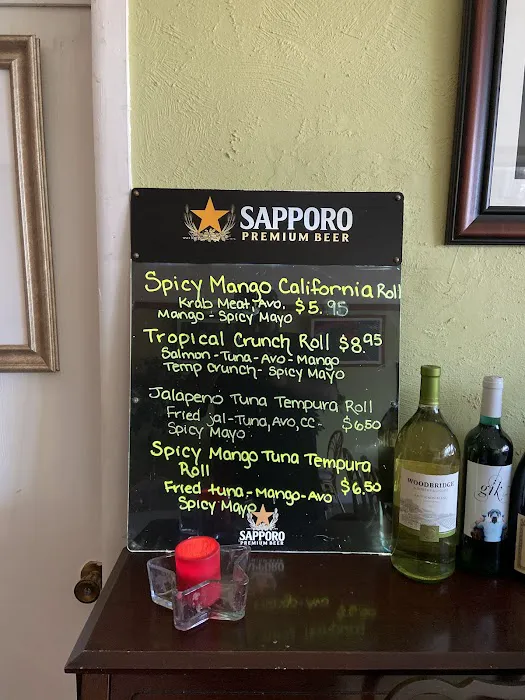 SAPPORO
PREMIUM BEER
Spicy Mango California Roll
Krab Meat, Avo, $5.95
Mango - Spicy Mayo
Tropical Crunch Roll $8.95
Salmon - Tuna - Avo - Mango
Temp Crunch - Spicy Mayo
Jalapeno Tuna Tempura Roll
Fried jal - Tuna, Avo, CC - $6.50
Spicy Mayo
Spicy Mango Tuna Tempura
Roll
Fried tuna - Mango - Avo $6.50
Spicy Mayo
SAPPORO
PREMIUM BEER
WOODBRIDGE
gïk